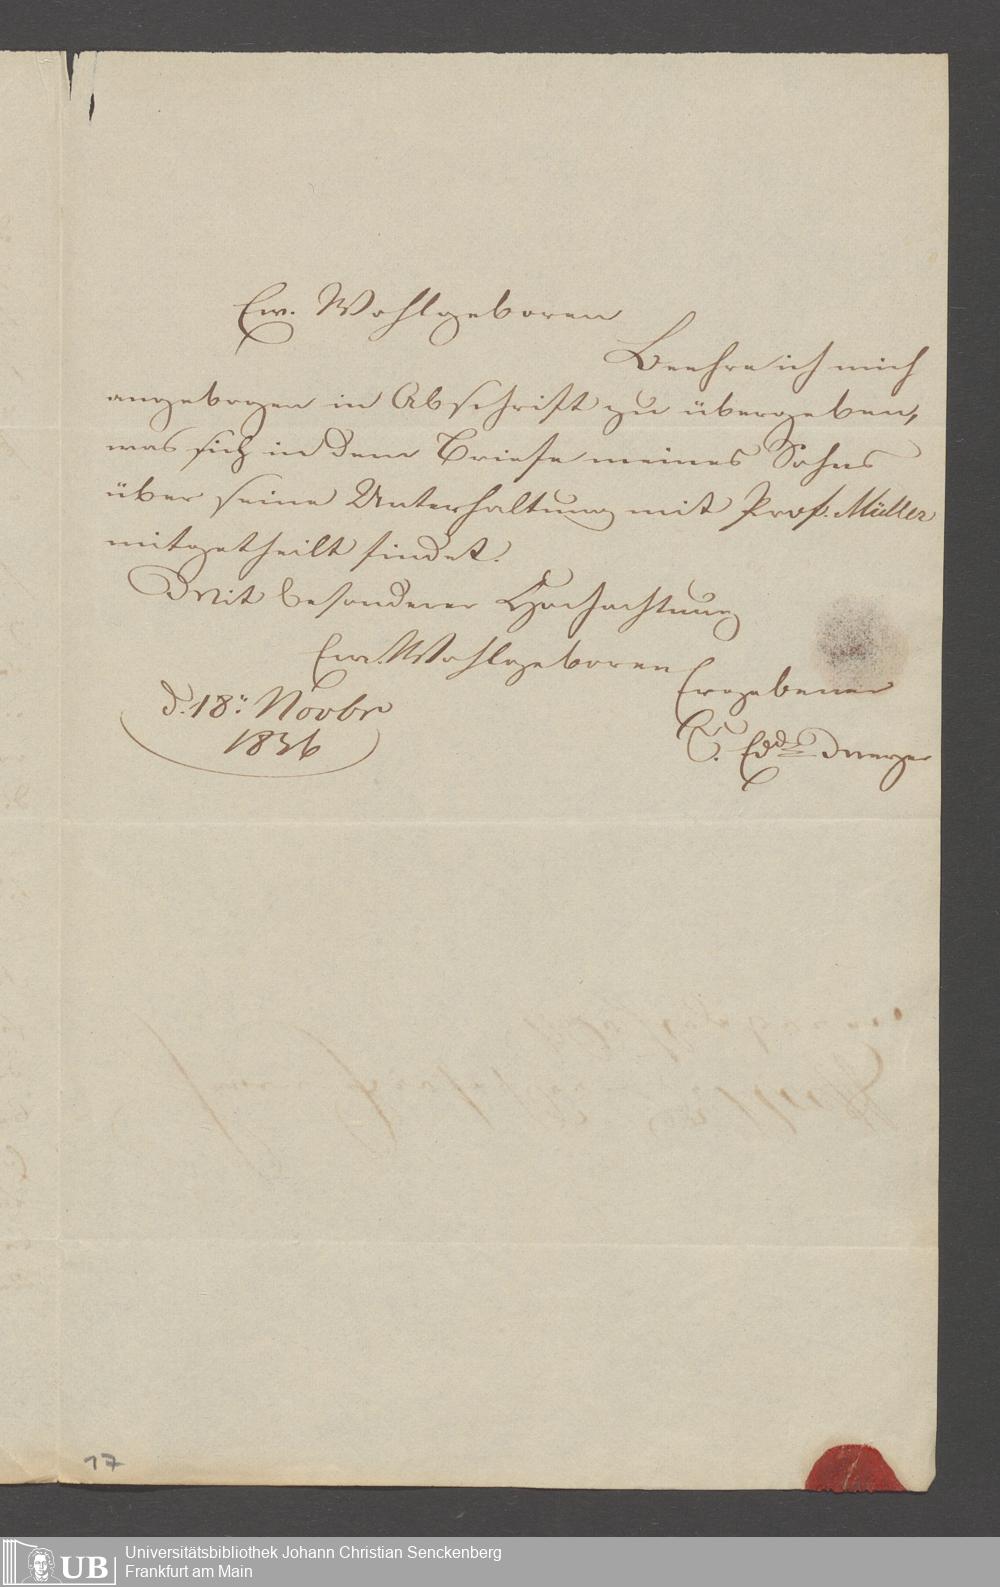 Ew. Wohlgeboren
Beehre ich mich
angebogen in Abschrift zu übergeben,
was sich in dem Briefe meines Sohns
über seine Unterhaltung mit Prof. Müller
mitgetheilt findet.
Mit besonderer Hochachtung
Ew. Wohlgeboren
Ergebener
d. 18: Novbr
1836
17
UB
Universitätsbibliothek Johann Christian Senckenberg
Frankfurt am Main